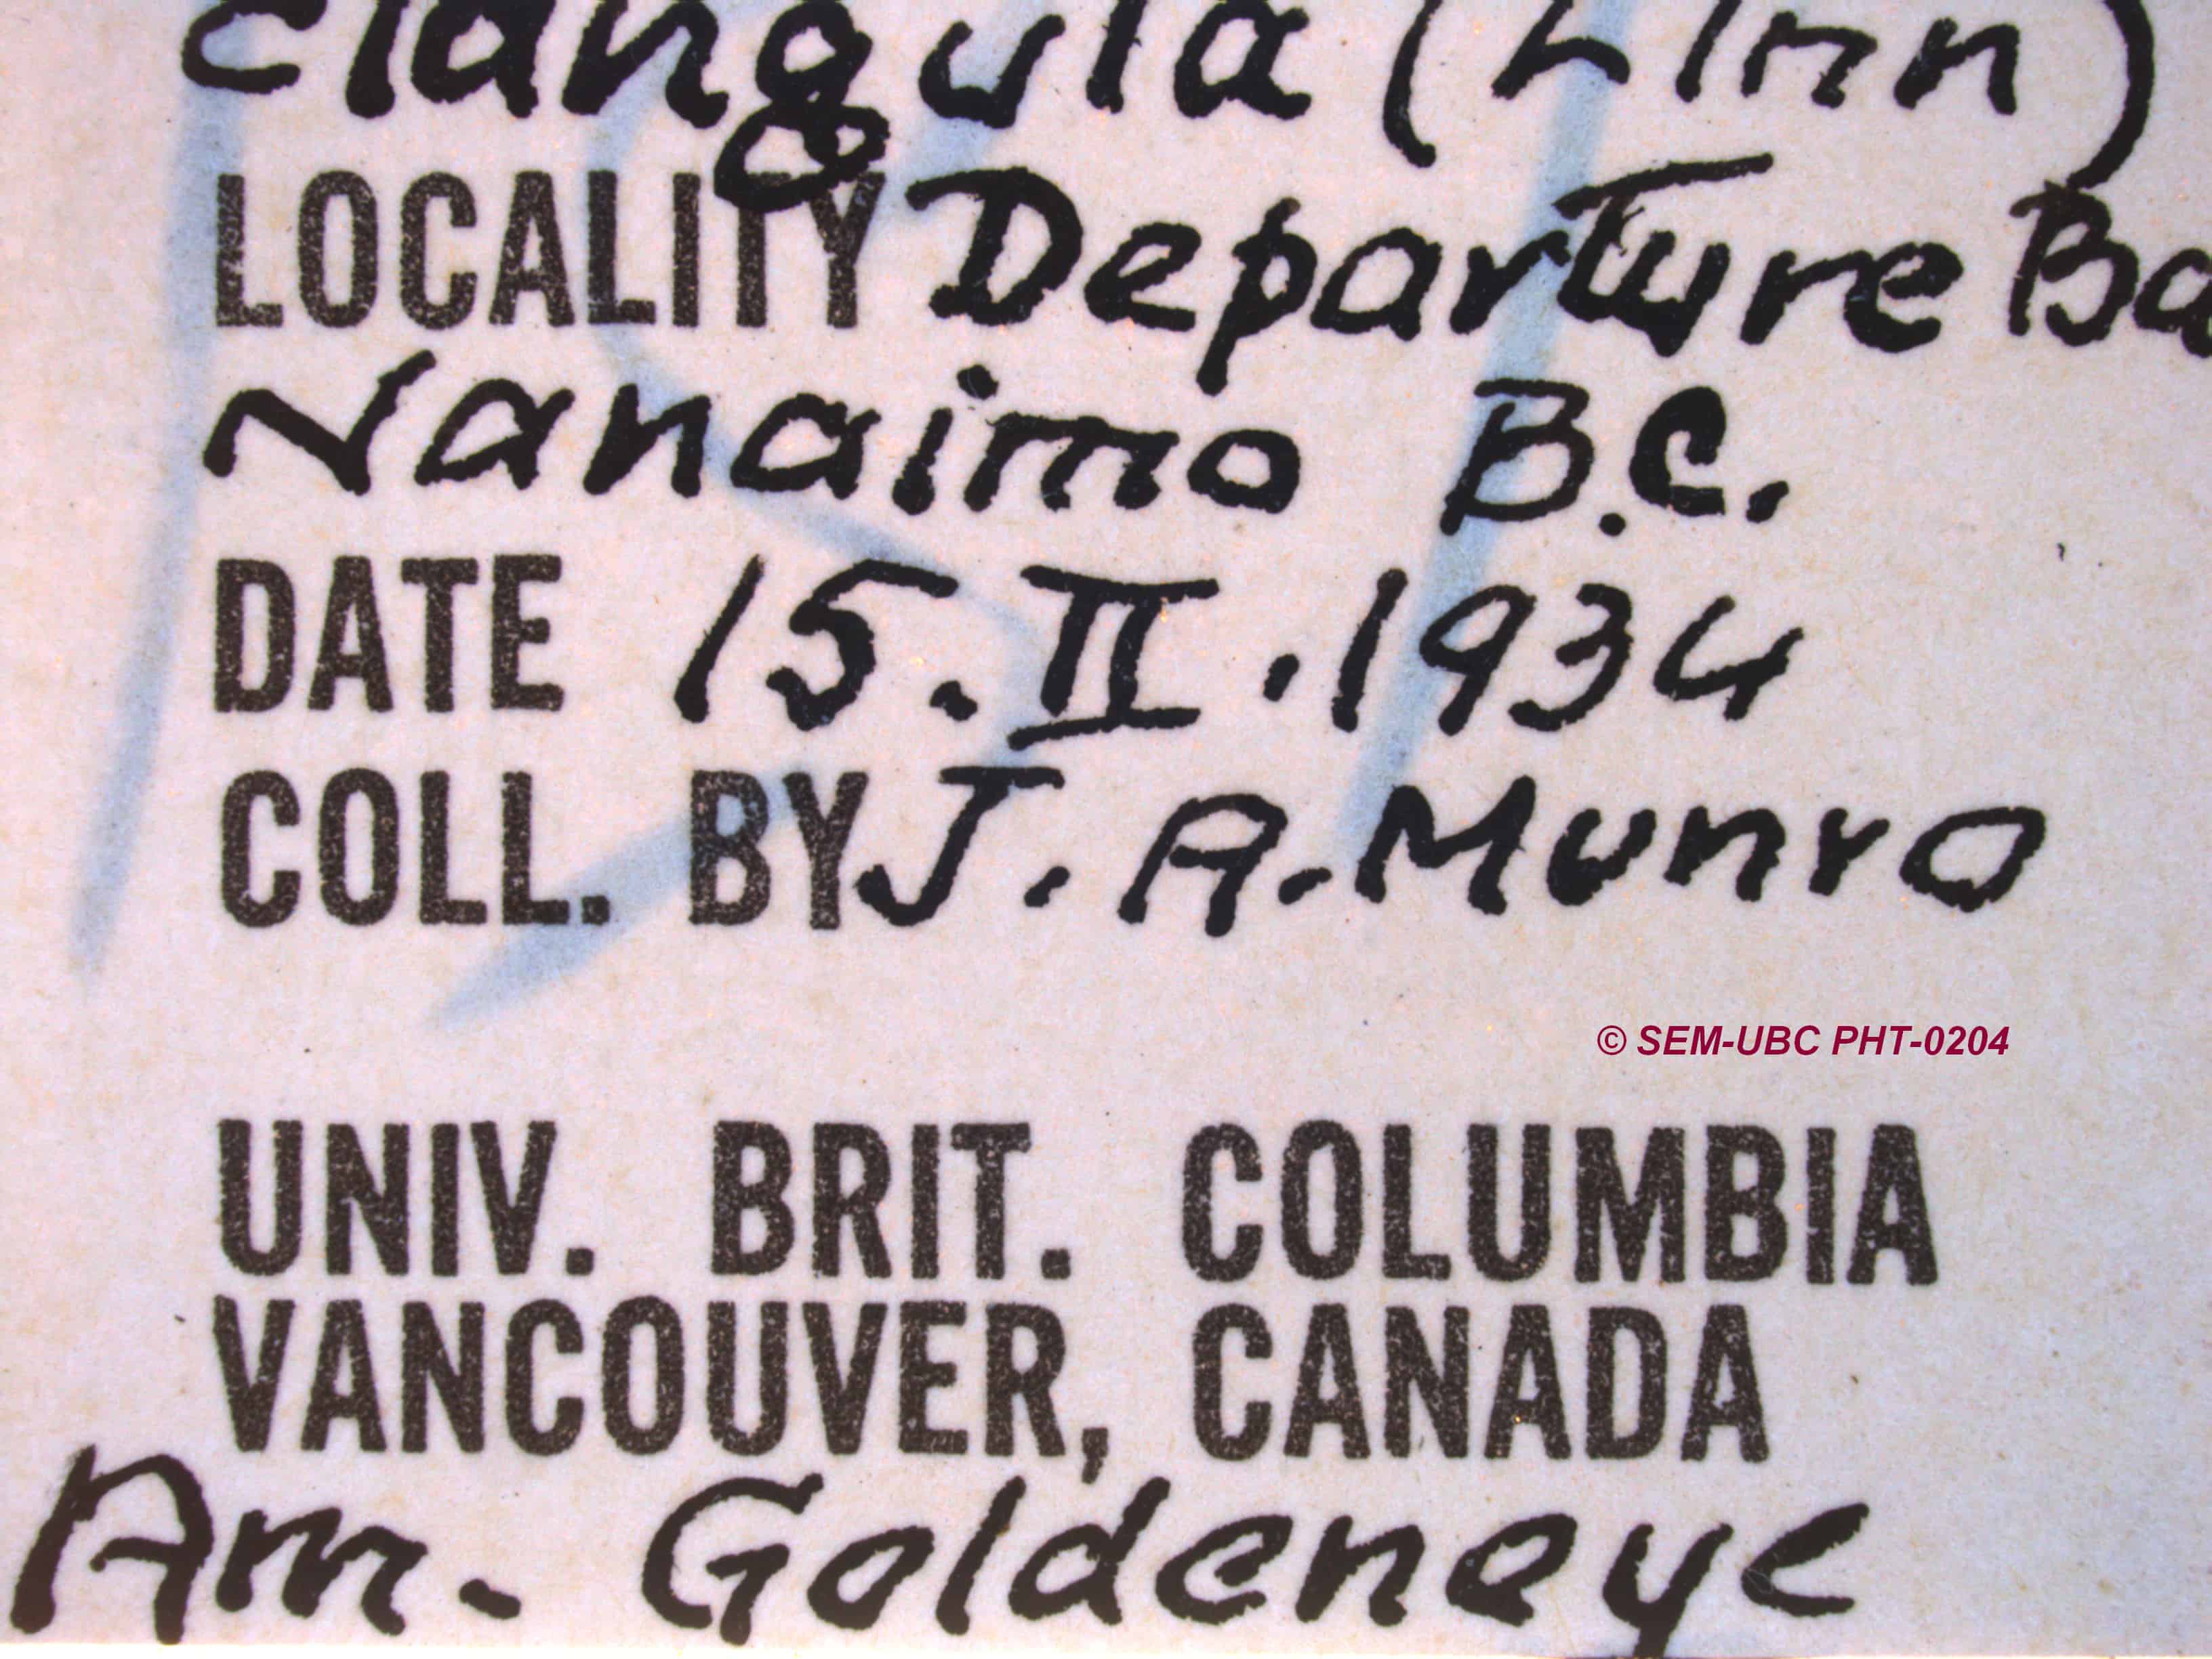 clangula (Linn)
LOCALITY Departure Ba
Nanaimo B.C.
DATE 15.II.1934
COLL. BY J. A. Munro
© SEM-UBC PHT-0204
UNIV. BRIT. COLUMBIA
VANCOUVER, CANADA
Am. Goldeneye